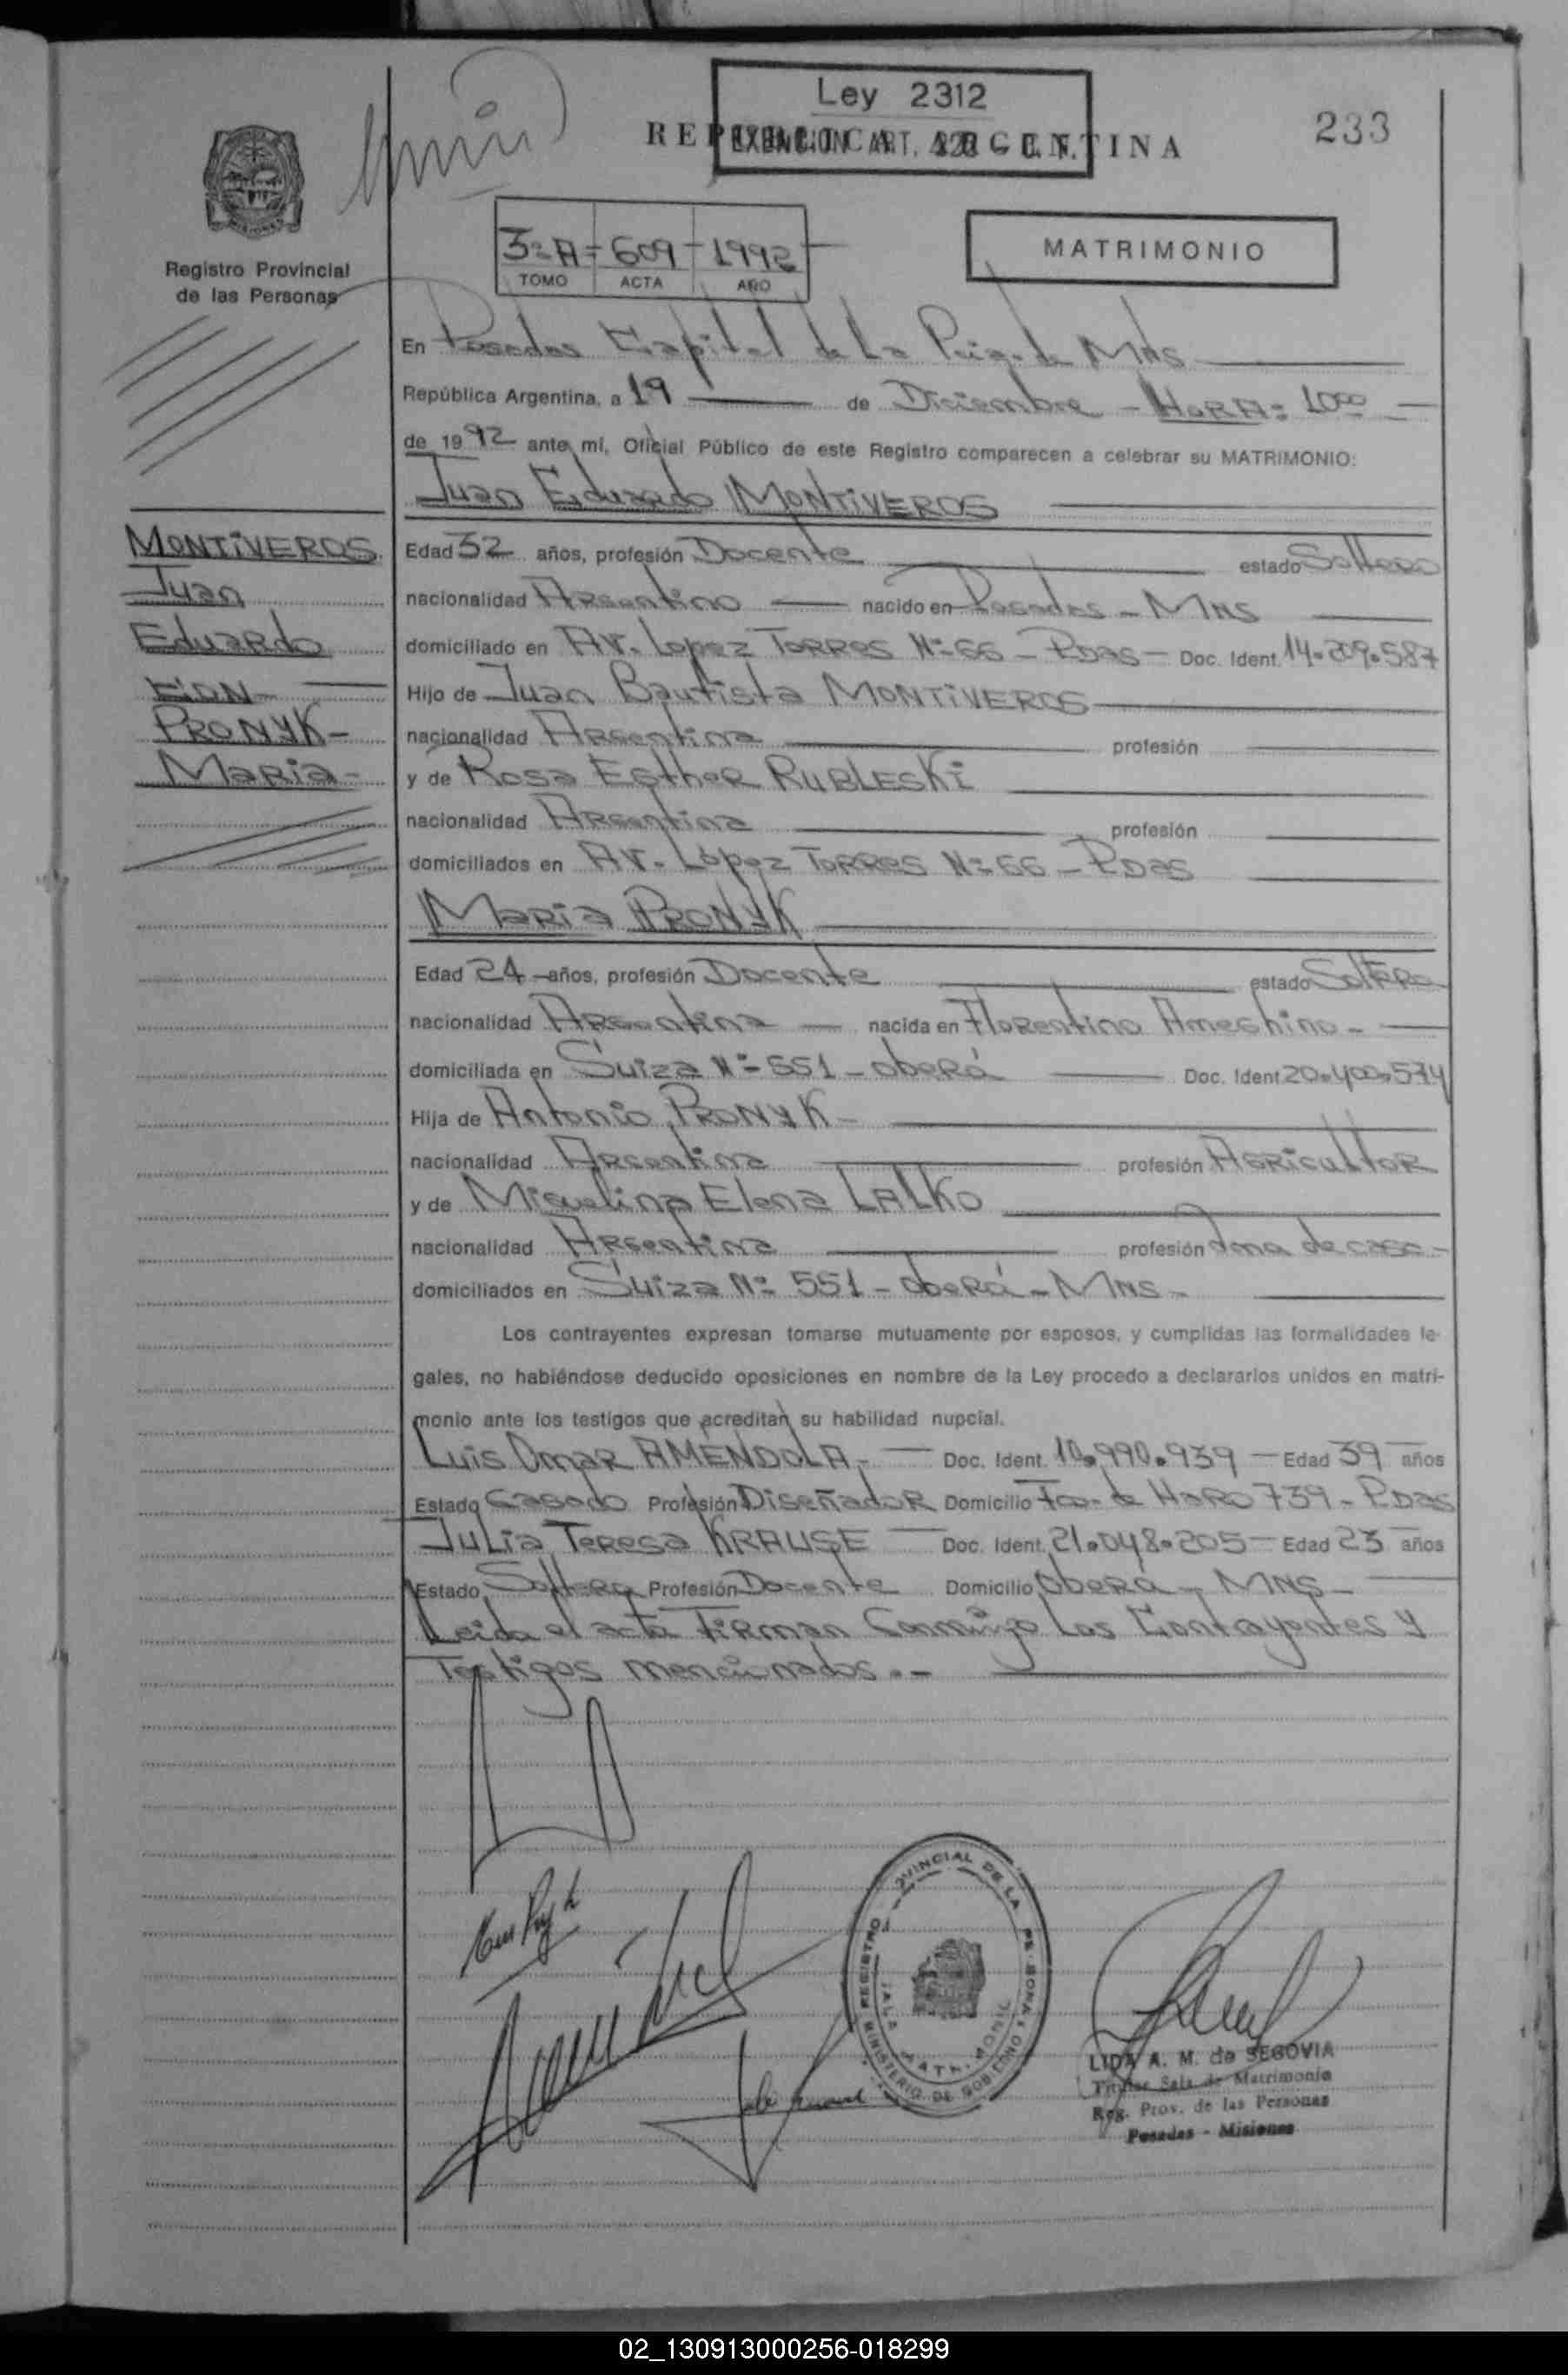 Ley 2312
REPUBLICA ARGENTINA
EXENCION ART.
233
3º A - 609 - 1992
TOMO ACTA AÑO
MATRIMONIO
Registro Provincial
de las Personas
En Posadas Capital de La Pcia. de Mnes
República Argentina, a 19 de Diciembre - HORA: 10⁰⁰
de 1992 ante mi, Oficial Público de este Registro comparecen a celebrar su MATRIMONIO:
Juan Eduardo MONTIVEROS
MONTIVEROS
Juan
Eduardo
CON
PRONYK-
Maria-
Edad 32 años, profesión Docente estado Soltero
nacionalidad Argentino nacido en Posadas - Mns
domiciliado en Av. Lopez Torres Nº 66 - Pdas - Doc. Ident. 14.209.587
Hijo de Juan Bautista MONTIVEROS
nacionalidad Argentina profesión
y de Rosa Esther RUBLESKI
nacionalidad Argentina profesión
domiciliados en Av. López Torres Nº 66 - Pdas
Maria PRONYK
Edad 24 años, profesión Docente estado Soltera
nacionalidad Argentina nacida en Florentino Ameghino -
domiciliada en Suiza Nº 551 - Oberá Doc. Ident. 20.400.574
Hija de Antonio PRONYK -
nacionalidad Argentina profesión Agricultor
y de Miguelina Elena LALKO
nacionalidad Argentina profesión Ama de casa -
domiciliados en Suiza Nº 551 - Oberá - Mns -
Los contrayentes expresan tomarse mutuamente por esposos, y cumplidas las formalidades le-
gales, no habiéndose deducido oposiciones en nombre de la Ley procedo a declararlos unidos en matri-
monio ante los testigos que acreditan su habilidad nupcial.
Luis Omar AMENDOLA - Doc. Ident. 10.990.939 - Edad 39 años
Estado Casado Profesión Diseñador Domicilio Fco. de Haro 739 - Pdas
Julia Teresa KRAUSE Doc. Ident. 21.048.205 - Edad 23 años
Estado Soltera Profesión Docente Domicilio Oberá - Mns -
Leida el acta Firman Conmigo Los Contrayentes y
Testigos mencionados. -
REGISTRO PROVINCIAL DE LA
MINISTERIO DE GOBIERNO
LIDA A. M. de SEGOVIA
Titular Sala de Matrimonio
Reg. Prov. de las Personas
Posadas - Misiones
02_130913000256-018299